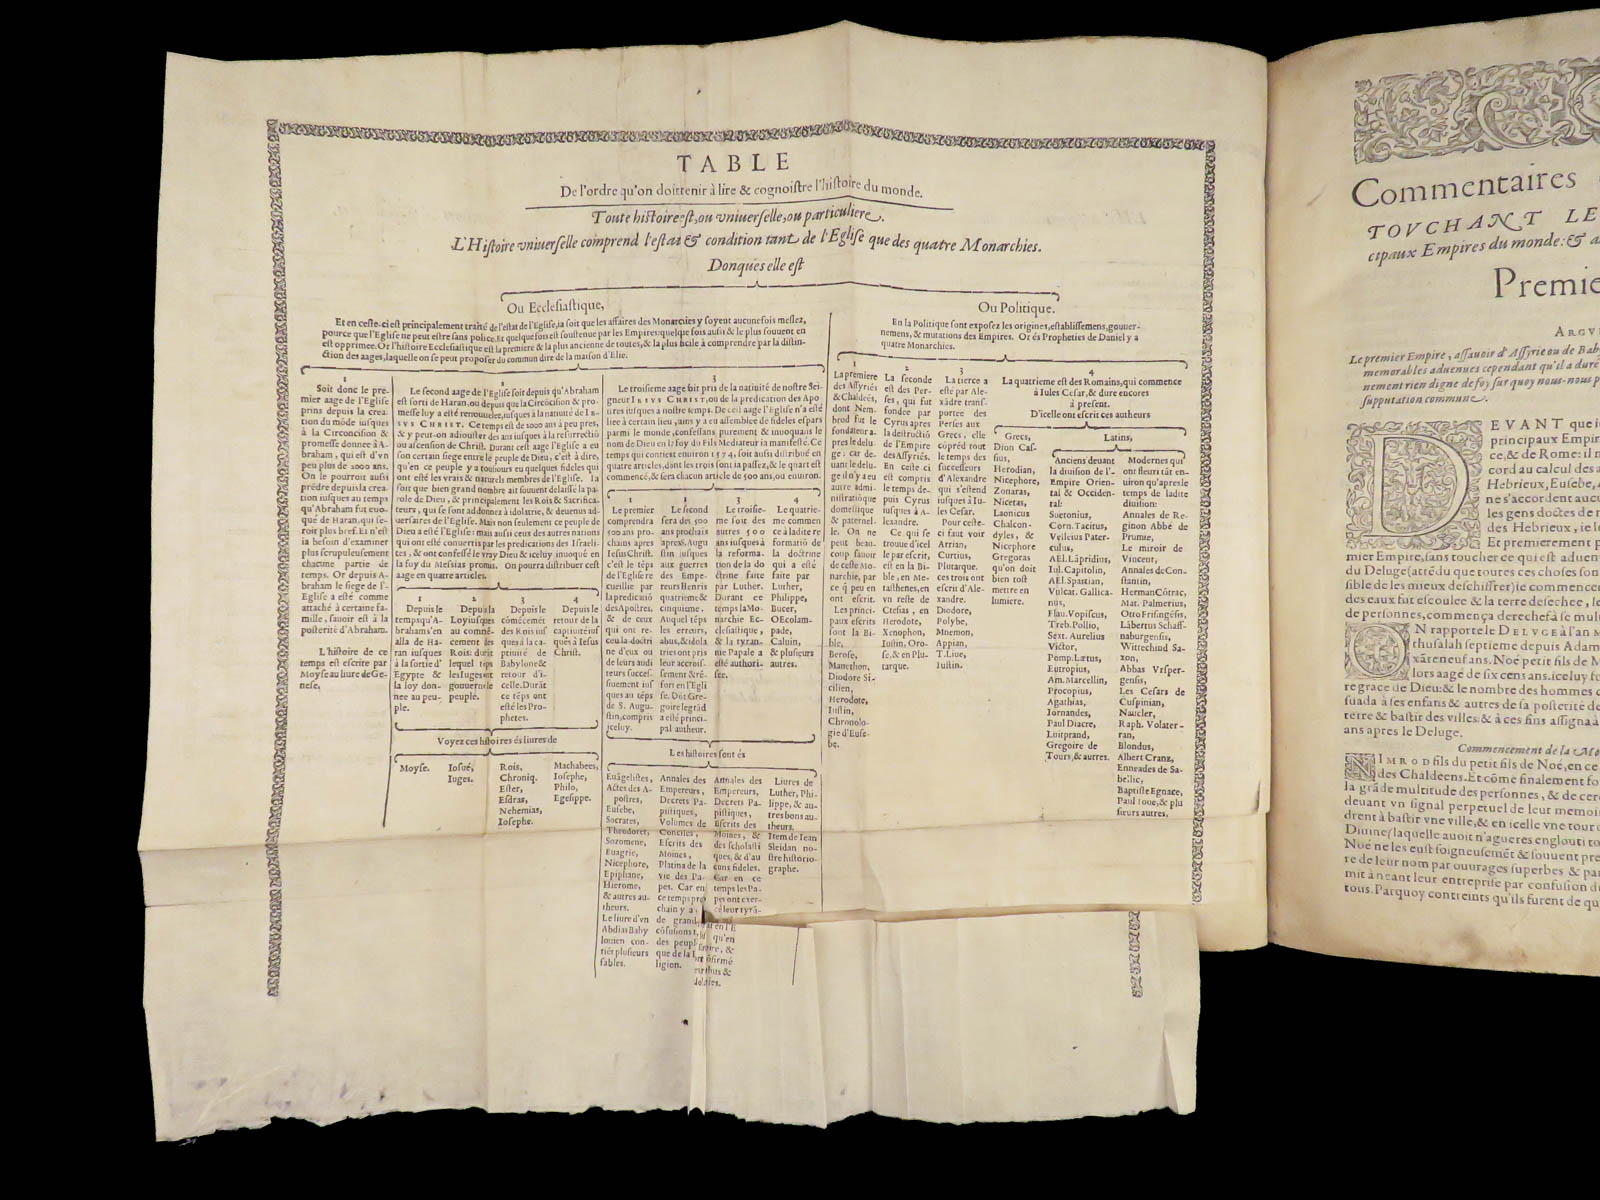 TABLE
De l'ordre qu'on doit tenir à lire & cognoistre l'histoire du monde.
Toute histoire est, ou vniuerselle, ou particuliere.
L'Histoire vniuerselle comprend l'estat & condition tant de l'Eglise que des quatre Monarchies.
Donques elle est
Ou Ecclesiastique,
Et en ceste-ci est principalement traité de l'estat de l'Eglise, ia soit que les affaires des Monarchies y soyent aucunefois meslez,
pource que l'Eglise ne peut estre sans police. Et quelque fois est soustenue par les Empires: quelque fois aussi & le plus souuent en
est opprimee. Or l'histoire Ecclesiastique est la premiere & la plus ancienne de toutes, & la plus facile à comprendre par la distin-
ction des aages, laquelle on se peut proposer du commun dire de la maison d'Elie.
1
Soit donc le pre-
mier aage de l'Eglise
prins depuis la crea-
tion du mõde iusques
à la Circoncision &
promesse donnee à A-
braham, qui est d'vn
peu plus de 2000 ans.
On le pourroit aussi
prẽdre depuis la crea
tion iusques au temps
qu'Abraham fut euo-
qué de Haran, qui se-
roit plus bref. Et n'est
ia besoin d'examiner
plus scrupuleusement
chacune partie de
temps. Or depuis A-
braham le siege de l'E-
glise a esté comme
attaché à certaine fa-
mille, sauoir est à la
posterité d'Abraham.
L'histoire de ce
temps est escrite par
Moyse au liure de Ge-
nese.
2
Le second aage de l'Eglise soit depuis qu'Abraham
est sorti de Haran, ou depuis que la Circõcision & pro-
messe luy a esté renouuelee, iusques à la natiuité de IE-
SVS CHRIST. Ce temps est de 2000 ans à peu pres,
& y peut-on adiouster des ans iusques à la resurrectiõ
ou ascension de Christ. Durant cest aage l'Eglise a eu
son certain siege entre le peuple de Dieu, c'est à dire,
qu'en ce peuple y a toujours eu quelques fideles qui
ont esté les vrais & naturels membres de l'Eglise. Ia
soit que bien grand nombre ait souuent delaissé la pa-
role de Dieu, & principalement les Rois & Sacrifica-
teurs, qui se sont addonnez à idolatrie, & deuenus ad-
uersaires de l'Eglise. Mais non seulement ce peuple de
Dieu a esté l'Eglise: mais aussi ceux des autres nations
qui ont esté conuertis par les predications des Israeli-
tes, & ont confessé le vray Dieu & iceluy inuoqué en
la foy du Messias promis. On pourra distribuer cest
aage en quatre articles.
1
Depuis le
temps qu'A-
braham s'en
alla de Ha-
ran iusques
à la sortie d'
Egypte &
la loy don-
nee au peu-
ple.
2
Depuis la
Loy iusques
au commẽ-
cement des
Rois: durãt
lequel tẽps
les Iuges ont
gouuerné le
peuple.
3
Depuis le
cõmẽcemẽt
des Rois ius
ques à la ca-
ptiuité de
Babylone &
retour d'i-
celle. Durãt
ce tẽps ont
esté les Pro-
phetes.
4
Depuis le
retour de la
captiuité ius
ques à Iesus
Christ.
Voyez ces histoires és liures de
Moyse.
Iosué,
Iuges.
Rois,
Chroniq.
Ester,
Esdras,
Nehemias,
Iosephe.
Machabees,
Iosephe,
Philo,
Egesippe.
3
Le troisieme aage soit pris de la natiuité de nostre Sei-
gneur IESVS CHRIST, ou de la predication des Apo-
stres iusques à nostre temps. De cest aage l'Eglise n'a esté
liee à certain lieu, ains y a eu assemblee de fideles espars
par le monde, confessans purement & inuoquans le
nom de Dieu en la foy du Fils Mediateur ia manifesté. Ce
temps qui contient enuiron 1574, soit aussi distribué en
quatre articles, dont les trois sont ia passez, & le quart est
commencé, & sera chacun article de 500 ans, ou enuiron.
1
Le premier
comprendra
500 ans pro-
chains apres
Iesus Christ.
c'est le tẽps
de l'Eglise re
cueillie par
la predicatiõ
des Apostres,
& de ceux
qui ont re-
ceu la doctri
ne d'eux ou
de leurs audi
teurs succes-
siuement ius
ques au tẽps
de S. Augu-
stin, compris
iceluy.
2
Le second
sera des 500
ans prochais
apres Augu
stin iusques
aux guerres
des Empe-
reurs Henris
quatrieme &
cinquieme.
Auquel tẽps
les erreurs,
abus, & idola
tries ont pris
leur accrois-
sement & rẽ-
fort en l'Egli
se. Dõt Gre-
goire legrãd
a esté princi-
pal autheur.
3
Le troisie-
me soit des
autres 500
ans iusques à
la reforma-
tion de la do
ctrine faite
par Luther.
Durant ce
temps la Mo-
narchie Ec-
clesiastique,
& la tyran-
nie Papale a
esté authori-
see.
4
Le quatrie-
me commen
ce à ladite re
formatiõ de
la doctrine
qui a esté
faite par
Luther,
Philippe,
Bucer,
OEcolam-
pade,
Caluin,
& plusieurs
autres.
Les histoires sont és
Euãgelistes,
Actes des A-
postres,
Eusebe,
Socrates,
Theodoret,
Sozomene,
Euagrie,
Nicephore,
Epiphane,
Hierome,
& autres au-
theurs.
Le liure d'vn
Abdias Baby
lonien con-
tiẽt plusieurs
fables.
Annales des
Empereurs,
Decrets Pa-
pistiques,
Volumes de
Conciles,
Escrits des
Moines,
Platina de la
vie des Pa-
pes. Car en
ce temps pro
chain y a
de grand
cõfusions
des peupl
que de la
ligion.
Annales des
Empereurs,
Decrets Pa-
pistiques,
Escrits des
Moines, &
des scholasti
ques, & d'au
cuns fideles.
Car en ce
temps les Pa-
pes ont exer-
cé leur tyrã-
Liures de
Luther, Phi-
lippe, & au-
tres bons au-
theurs.
Item de Iean
Sleidan no-
stre historio-
graphe.
Ou Politique.
En la Politique sont exposez les origines, establissemens, gouuer-
nemens, & mutations des Empires. Or és Propheties de Daniel y a
quatre Monarchies.
1
La premiere
des Assyriẽs
& Chaldeẽs,
dont Nem-
brod fut le
fondateur a-
pres le delu-
ge: car de-
uant le delu-
ge il n'y a eu
autre admi-
nistratiõ que
domestique
& paternel-
le. On ne
peut beau-
coup sauoir
de ceste Mo-
narchie, par
ce q̃ peu en
ont escrit.
Les princi-
paux escrits
sont la Bi-
ble,
Berose,
Manethon,
Diodore Si-
cilien,
Herodote,
Iustin,
Chronolo-
gie d'Euse-
be.
2
La seconde
est des Per-
ses, qui fut
fondee par
Cyrus apres
la destructiõ
de l'Empire
des Assyriẽs.
En ceste ci
est compris
le temps de-
puis Cyrus
iusques à A-
lexandre.
Ce qui se
trouue d'icel
le par escrit,
est en la Bi-
ble, en Me-
tasthenes, en
vn reste de
Ctesias, en
Herodote,
Xenophon,
Iustin, Oro-
se, & en Plu-
tarque.
3
La tierce a
esté par Ale-
xãdre trans-
portee des
Perses aux
Grecs, elle
cõprẽd tout
le temps des
successeurs
d'Alexandre
qui s'estend
iusques à Iu-
les Cesar.
Pour ceste-
ci faut voir
Arrian,
Curtius,
Plutarque.
ces trois ont
escrit d'Ale-
xandre.
Diodore,
Polybe,
Mnemon,
Appian,
T. Liue,
Iustin.
4
La quatrieme est des Romains, qui commence
à Iules Cesar, & dure encores
à present.
D'icelle ont escrit ces autheurs
Grecs,
Dion Cas-
sius,
Herodian,
Nicephore,
Zonaras,
Nicetas,
Laonicus
Chalcon-
dyles, &
Nicephore
Gregoras
qu'on doit
bien tost
mettre en
lumiere.
Latins,
Anciens deuant
la diuision de l'-
Empire Orien-
tal & Occiden-
tal:
Suetonius,
Corn. Tacitus,
Velleius Pater-
culus,
AEl. Lãpridius,
Iul. Capitolin,
AEl. Spartian,
Vulcat. Gallica-
nus,
Flau. Vopiscus,
Treb. Pollio,
Sext. Aurelius
Victor,
Pomp. Lætus,
Eutropius,
Am. Marcellin,
Procopius,
Agathias,
Iornandes,
Paul Diacre,
Luitprand,
Gregoire de
Tours, & autres.
Modernes qui
ont fleuri tãt en-
uiron qu'apres le
temps de ladite
diuision:
Annales de Re-
ginon Abbé de
Prumie,
Le miroir de
Vincent,
Annales de Con-
stantin,
Herman Cõtrac,
Mat. Palmerius,
Otto Frisingẽsis,
Lãbertus Schaff-
naburgensis,
Wittechind Sa-
xon,
Abbas Vrsper-
gensis,
Les Cesars de
Cuspinian,
Naucler,
Raph. Volater-
ran,
Blondus,
Albert Crantz,
Enneades de Sa-
bellic,
Baptiste Egnace,
Paul Ioue, & plu
sieurs autres.
Commentaires
TOVCHANT LE
cipaux Empires du monde: & a
Premie
ARGV
Le premier Empire, assauoir d'Assyrie ou de Bab
memorables aduenues cependant qu'il a duré
nement rien digne de foy sur quoy nous-nous p
supputation commune.
DEVANT que i
principaux Empir
ce, & de Rome: il n
cord au calcul des a
Hebrieux, Eusebe,
ne s'accordent aucu
les gens doctes de n
des Hebrieux, ie l
Et premierement p
mier Empire, sans toucher ce qui est aduen
du Deluge (attẽdu que toutes ces choses son
sible de les mieux deschiffrer) ie commence
des eaux fut escoulee & la terre desechee, l
de personnes, commença derechef à se mul
ON rapporte le DELVGE à l'an
thusalah septieme depuis Adam
xãte neuf ans. Noé petit fils de M
lors aagé de six cens ans. iceluy fu
re grace de Dieu: & le nombre des hommes c
suada à ses enfans & autres de sa posterité de
terre & bastir des villes: & à ces fins assigna à
ans apres le Deluge.
Commencement de la Mo
NIMROD fils du petit fils de Noé, en ce
des Chaldeens. Et cõme finalement fo
la grãde multitude des personnes, & de cer
deuant vn signal perpetuel de leur memoi
drent à bastir vne ville, & en icelle vne tour
Diuine (laquelle auoit n'agueres englouti to
Noé ne les eust soigneusemẽt & souuent pre
re de leur nom par ouurages superbes & pa
mit à neant leur entreprise par confusion d
tous. Parquoy contreints qu'ils furent de qu